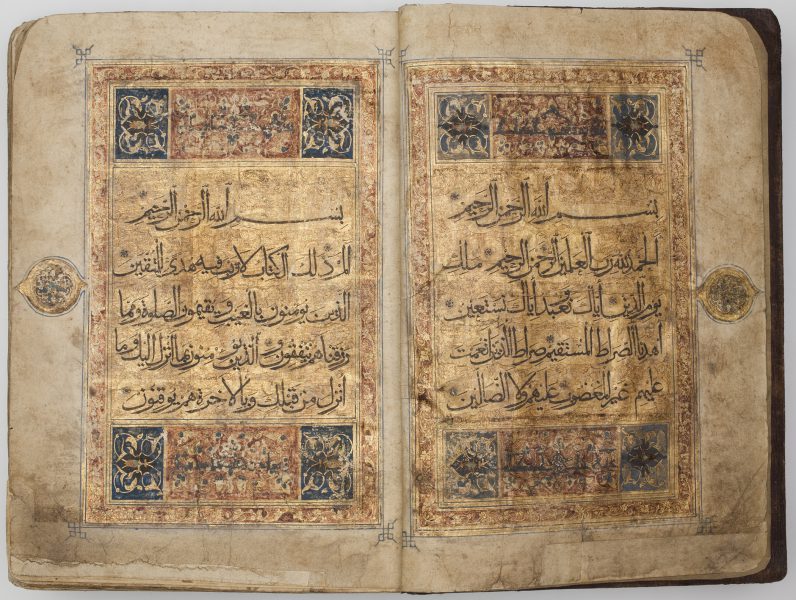 بسم الله الرحمن الرحيم
الحمد لله رب العلمين الرحمن الرحيم ملك
يوم الدين اياك نعبد واياك نستعين
اهدنا الصراط المستقيم صراط الذين انعمت
عليهم غير المغضوب عليهم ولا الضالين
بسم الله الرحمن الرحيم
الم ذلك الكتاب لا ريب فيه هدى للمتقين
الذين يؤمنون بالغيب ويقيمون الصلوة ومما
رزقناهم ينفقون والذين يؤمنون بما انزل اليك وما
انزل من قبلك وبالاخرة هم يوقنون